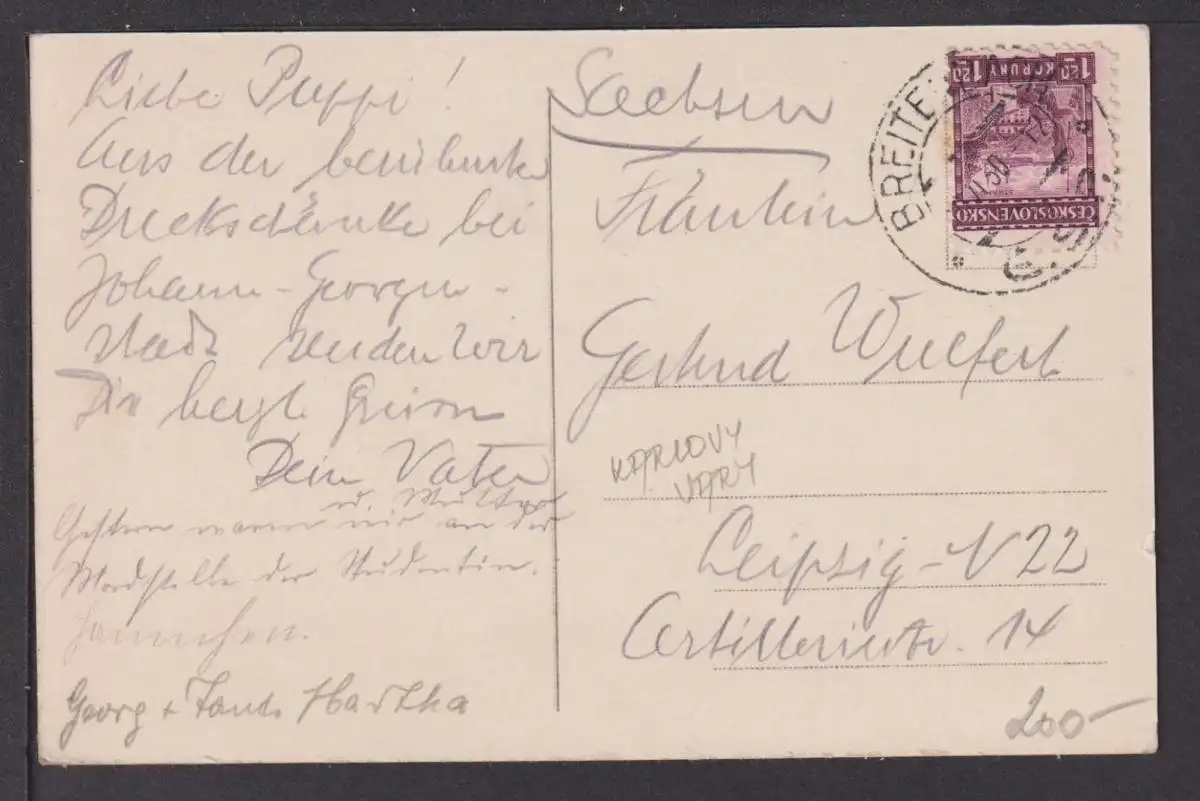 Liebe Puppi!
Aus der berühmten
Dreckschänke bei
Johann-Georgen-
stadt senden wir
Dir herzl. Grüsse
Dein Vater
u. Mutter
Gestern waren wir an der
Mordstelle der Studentin.
Hannchen.
Georg + Tante Martha
Sachsen
Fräulein
Gertrud Wulfert
KARLOVY
VARY
Leipzig-N22
Artilleriestr. 14
200-
1.20 KORUNY 1.20
ČESKOSLOVENSKO
BREITENBACH
Č.S.